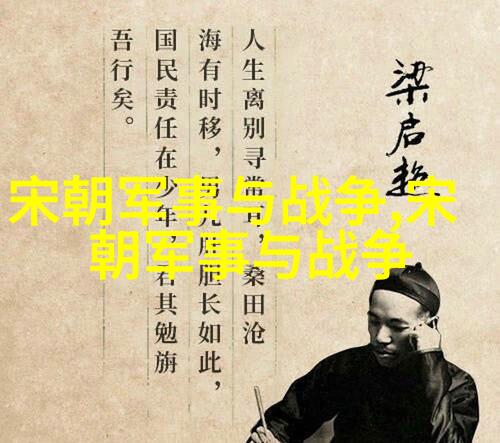 梁启超
人生离别寻常耳，桑田沧
海有时移，男儿肝胆长如此，
国民责任在少年，君其勉旃
吾行矣。
宋朝军事与战争,宋
朝军事与战争